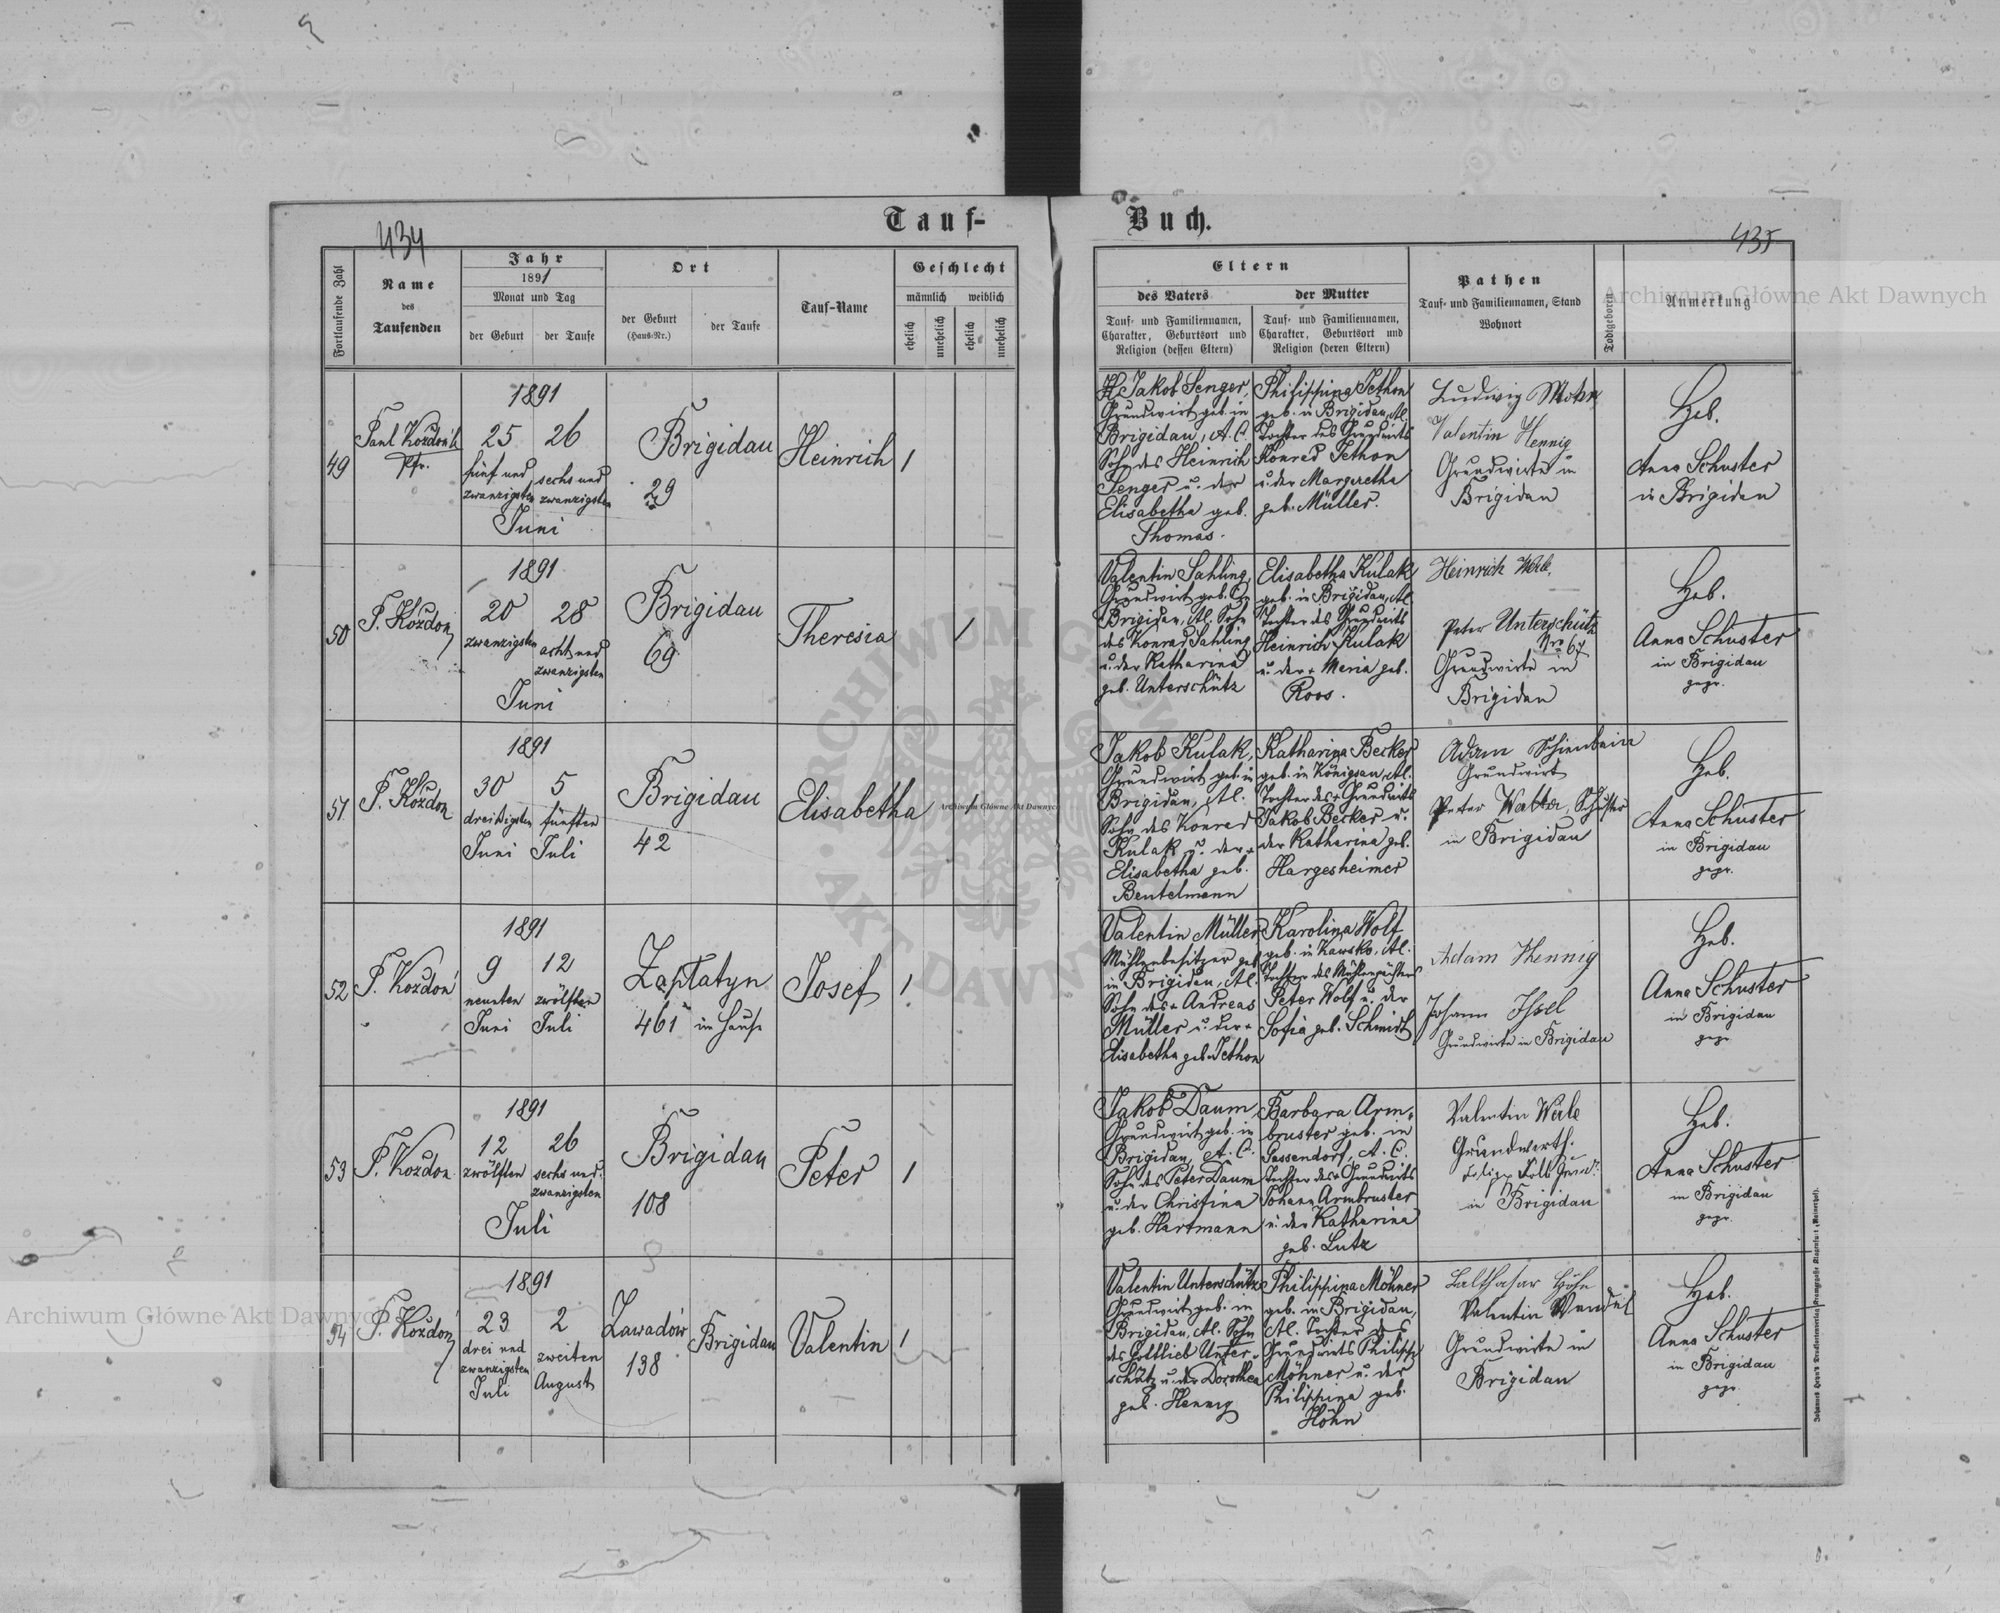 Tauf-
Buch.
434
435
Fortlaufende Zahl
Name
des
Taufenden
Jahr
1891
Monat und Tag
der Geburt
der Taufe
Ort
der Geburt
(Haus-Nr.)
der Taufe
Tauf-Name
Geschlecht
männlich
weiblich
ehelich
unehelich
ehelich
unehelich
Eltern
des Vaters
der Mutter
Tauf- und Familiennamen,
Charakter, Geburtsort und
Religion (dessen Eltern)
Tauf- und Familiennamen,
Charakter, Geburtsort und
Religion (deren Eltern)
Pathen
Tauf- und Familiennamen, Stand
Wohnort
Todtgeboren
Anmerkung
49
Paul Kozdoń
Pfr.
1891
25 26
fünf und
zwanzigsten
sechs und
zwanzigsten
Juni
Brigidau
29
Heinrich
Jakob Senger,
Grundwirt geb. in
Brigidau, A. C.
Sohn des Heinrich
Senger u. der
Elisabetha geb.
Thomas.
Philippina Jethon
geb. in Brigidau, Al.
Tochter des Grundwirts
Konrad Jethon
u. der Margaretha
geb. Müller.
Ludwig Mohn
Valentin Hennig
Grundwirte in
Brigidau
Heb.
Anna Schuster
in Brigidau
50
P. Kozdoń
1891
20 28
zwanzigsten
acht und
zwanzigsten
Juni
Brigidau
69
Theresia
Valentin Sahling,
Grundwirt geb. in
Brigidau, Al. Sohn
des Konrad Sahling
u. der Katharina
geb. Unterschütz
Elisabetha Kulak
geb. in Brigidau, Al.
Tochter des Grundwirts
Heinrich Kulak
u. der + Maria geb.
Roos.
Heinrich Werle,
Peter Unterschütz
Nro 67
Grundwirte in
Brigidau
Heb.
Anna Schuster
in Brigidau
gepr.
51
P. Kozdoń
1891
30 5
dreißigsten fünften
Juni Juli
Brigidau
42
Elisabetha
Jakob Kulak,
Grundwirt geb. in
Brigidau, Al.
Sohn des Konrad
Kulak u. der +
Elisabetha geb.
Beutelmann
Katharina Becker
geb. in Königsau, Al.
Tochter des + Grundwirts
Jakob Becker u.
der Katharina geb.
Hargesheimer
Adam Schienbein
Grundwirt
Peter Walter, Schuster
in Brigidau
Heb.
Anna Schuster
in Brigidau
gepr.
52
P. Kozdoń
1891
9 12
neunten zwölften
Juni Juli
Zaplatyn
461 im Hause
Josef
Valentin Müller
Mühlenbesitzer geb.
in Brigidau, Al.
Sohn des + Andreas
Müller u. der +
Elisabetha geb. Jethon
Karolina Wolf
geb. in Kawsko, Al.
Tochter des Mühlenpächters
Peter Wolf u. der
Sofia geb. Schmidt
Adam Hennig
Johann Issel
Grundwirte in Brigidau
Heb.
Anna Schuster
in Brigidau
gepr.
53
P. Kozdoń
1891
12 26
zwölften
sechs und
zwanzigsten
Juli
Brigidau
108
Peter
Jakob Daum
Grundwirt geb. in
Brigidau, A. C.
Sohn des Peter Daum
u. der Christina
geb. Hartmann
Barbara Arm-
bruster geb. in
Gassendorf, A. C.
Tochter des + Grundwirts
Johann Armbruster
u. der Katharina
geb. Lutz
Valentin Werle
Grundwirth.
in Brigidau
Heb.
Anna Schuster
in Brigidau
gepr.
54
P. Kozdoń
1891
23 2
drei und
zwanzigsten
Juli
zweiten
August
Zawadów
138
Brigidau
Valentin
Valentin Unterschütz
Grundwirt geb. in
Brigidau, Al. Sohn
des Gottlieb Unter-
schütz u. der Dorothea
geb. Hennig
Philippina Möhner
geb. in Brigidau,
Al. Tochter des
Grundwirts Philipp
Möhner u. der
Philippina geb.
Höhn
Balthasar Höhn
Valentin Wendel
Grundwirte in
Brigidau
Heb.
Anna Schuster
in Brigidau
gepr.
Archiwum Główne Akt Dawnych
Archiwum Główne Akt Dawnych
Archiwum Główne Akt Dawnych
ARCHIWUM GŁÓWNE AKT DAWNYCH